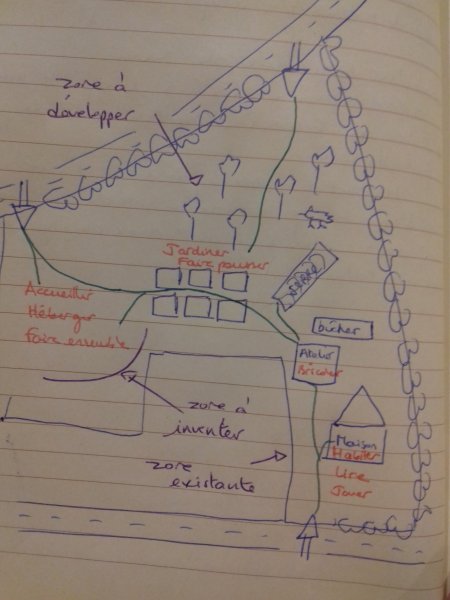 zone à
développer
Jardiner
Faire pousser
SERRE
Accueillir
Héberger
Faire ensemble
bûcher
Atelier
Bricoler
zone à
inventer
Maison
Habiter
Lire
Jouer
zone
existante